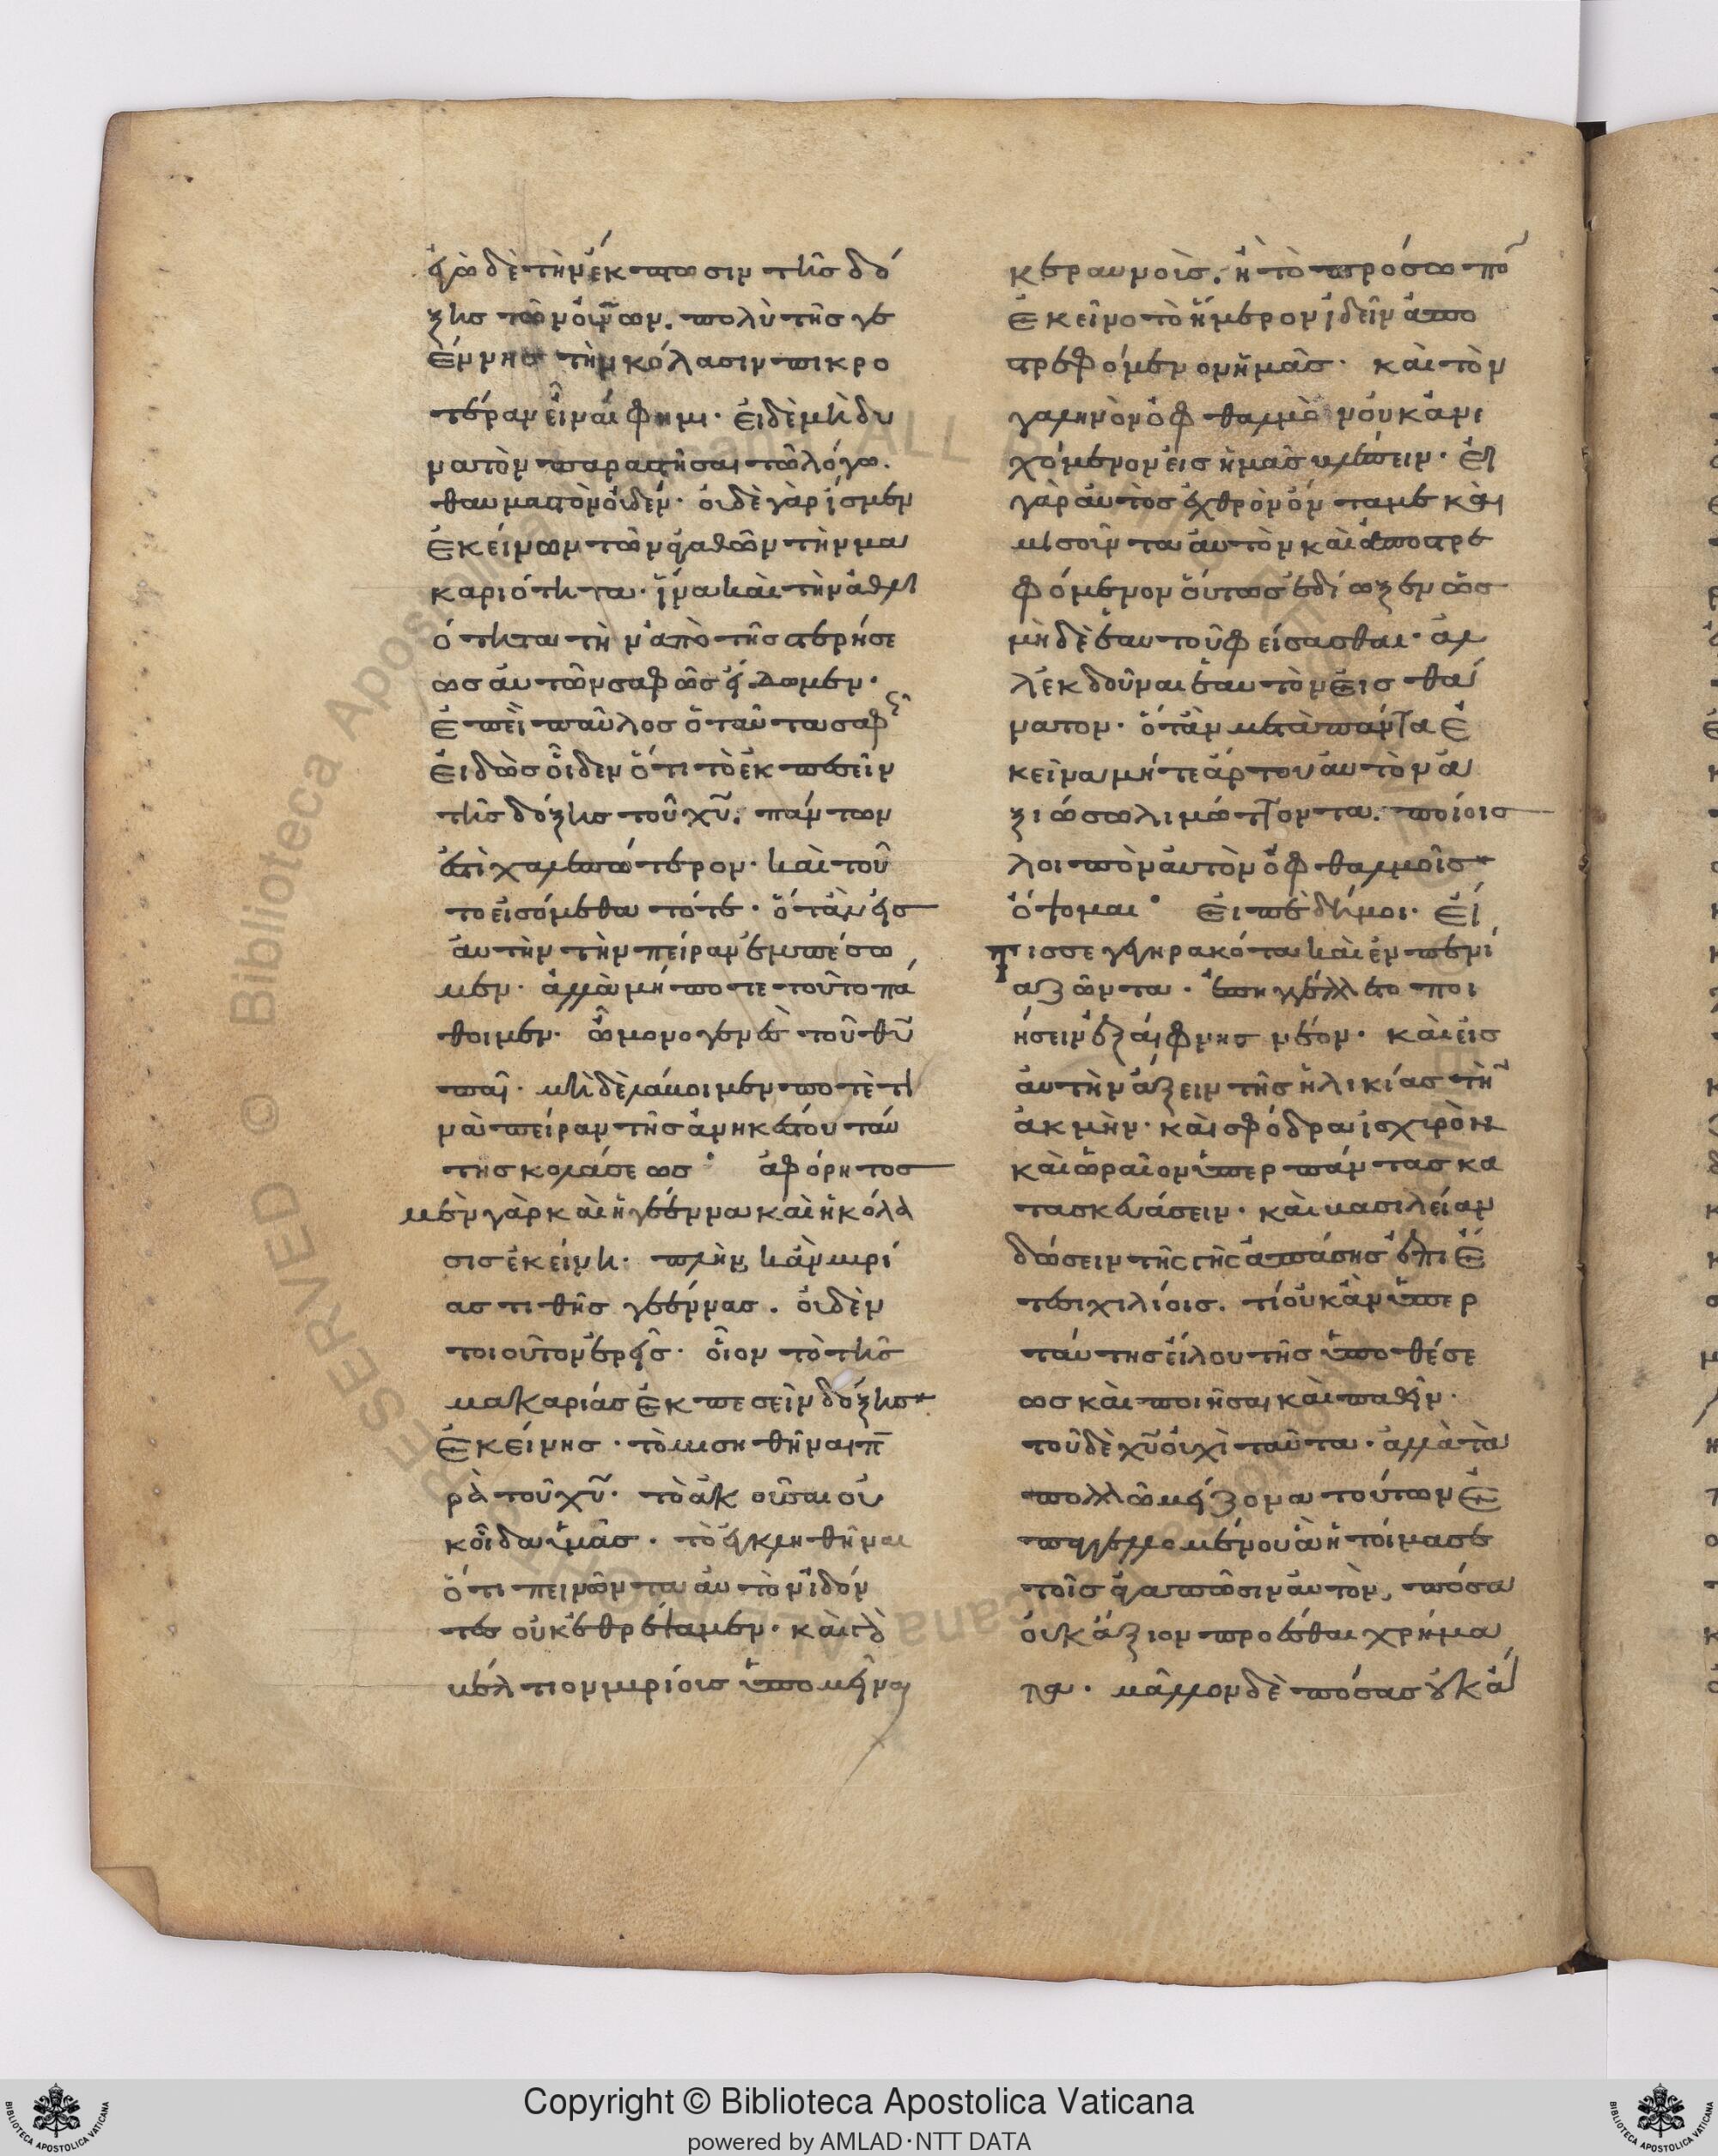 ἐγὼ δὲ τὴν ἔκπτωσιν τῆς δό
ξης τῶν οὐνων. πολὺ τῆς γε
έννης τὴν κόλασιν πικρο
τέραν εἶναι φημι. εἰ δὲ μὴ δυ
νατὸν παραστῆσαι τῶ λόγω.
θαυμαστὸν οὐδέν. οὐδὲ γὰρ ἴσμεν
ἐκείνων τῶν ἀγαθῶν τὴν μα
καριότητα. ἵνα καὶ τὴν ἀθλι
ότητα τὴν ἀπὸ τῆς στερήσε
ως αὐτῶν σαφῶς εἴδωμεν.
ἐπεὶ παῦλος ὁ ταῦτα σαφῶς
εἰδὼς οἶδεν ὅτι τὸ ἐκπεσεῖν
τῆς δόξης τοῦ χυ. πάντων
ἐστὶ χαλεπώτερον. καὶ τοῦ
το εἰσόμεθα τότε. ὅταν εἰς
αὐτὴν τὴν πεῖραν ἐμπέσω
μεν. ἀλλὰ μήποτε τοῦτο πά
θοιμεν. ὦ μονογενὲς τοῦ θυ
παῖ. μὴ δὲ λάβοιμεν ποτέ τι
να πεῖραν τῆς ἀνηκέστου ταύ
της κολάσεως ἀφόρητος
μὲν γὰρ καὶ ἡ γέεννα καὶ ἡ κόλα
σις ἐκείνη. πλὴν κἂν μυρί
ας τι θῆς γεέννας. οὐδὲν
τοιοῦτον ἐρεῖς. οἷον τὸ τῆς
μακαρίας ἐκπεσεῖν δόξης
ἐκείνης. τὸ μισηθῆναι πα
ρὰ τοῦ χυ. τὸ ἀκοῦσαι οὐ
κ οἶδα ὑμᾶς. τὸ ἐγκληθῆναι
ὅτι πεινῶντα αὐτὸν ἰδόν
τες οὐκ ἐθρέψαμεν. καὶ τὸ
βέλτιον μυρίους ὑπομεῖναι
κεραυνοὺς. ἢ τὸ πρόσωπον
ἐκεῖνο τὸ ἥμερον ἰδεῖν ἀπο
στρεφόμενον ἡμᾶς. καὶ τὸν
γαληνὸν ὀφθαλμὸν οὐκ ἀνε
χόμενον εἰς ἡμᾶς βλέπειν. εἰ
γὰρ αὐτὸς ἐχθρὸν ὄντα με καὶ
μισοῦντα αὐτὸν καὶ ἀποστρε
φόμενον οὕτως ἐδίωξεν ὡς
μὴ δὲ ἑαυτοῦ φείσασθαι. ἀλ
λ' ἐκδοῦναι ἑαυτὸν εἰς θά
νατον. ὅταν μετὰ πάντα ἐ
κεῖνα μήτε ἄρτου αὐτὸν ἀ
ξιώσω λιμώττοντα. ποίοις
λοιπὸν αὐτὸν ὀφθαλμοῖς
ὄψομαι εἰπὲ δή μοι. εἴ
τις σε γεγηρακότα καὶ ἐν πενί
α ζῶντα. ἐπηγγέλλετο ποι
ήσειν ἐξαίφνης νέον. καὶ εἰς
αὐτὴν ἄξειν τῆς ἡλικίας τὴν
ἀκμήν. καὶ σφόδρα ἰσχυρὸν
καὶ ὡραῖον ὑπερ πάντας κα
τασκευάσειν. καὶ βασιλείαν
δώσειν τῆς γῆς ἁπάσης ἐπὶ ἔ
τεσι χιλίοις. τί οὐκ ἂν ὑπερ
ταύτης εἵλου τῆς ὑποθέσε
ως καὶ ποιῆσαι καὶ παθεῖν.
τοῦ δὲ χυ οὐχὶ ταῦτα. ἀλλὰ τὰ
πολλῶ μείζονα τούτων ἐ
πηγγελλομένου ἃ ἡτοίμασε
τοῖς ἀγαπῶσιν αὐτὸν, πόσα
οὐκ ἄξιον προέσθαι χρήμα
τα. μᾶλλον δὲ πόσας οὐκ ἄ
Copyright © Biblioteca Apostolica Vaticana
powered by AMLAD·NTT DATA